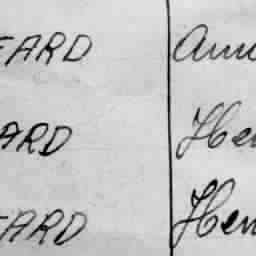 FARD Ann
ARD Hen
FARD Hen